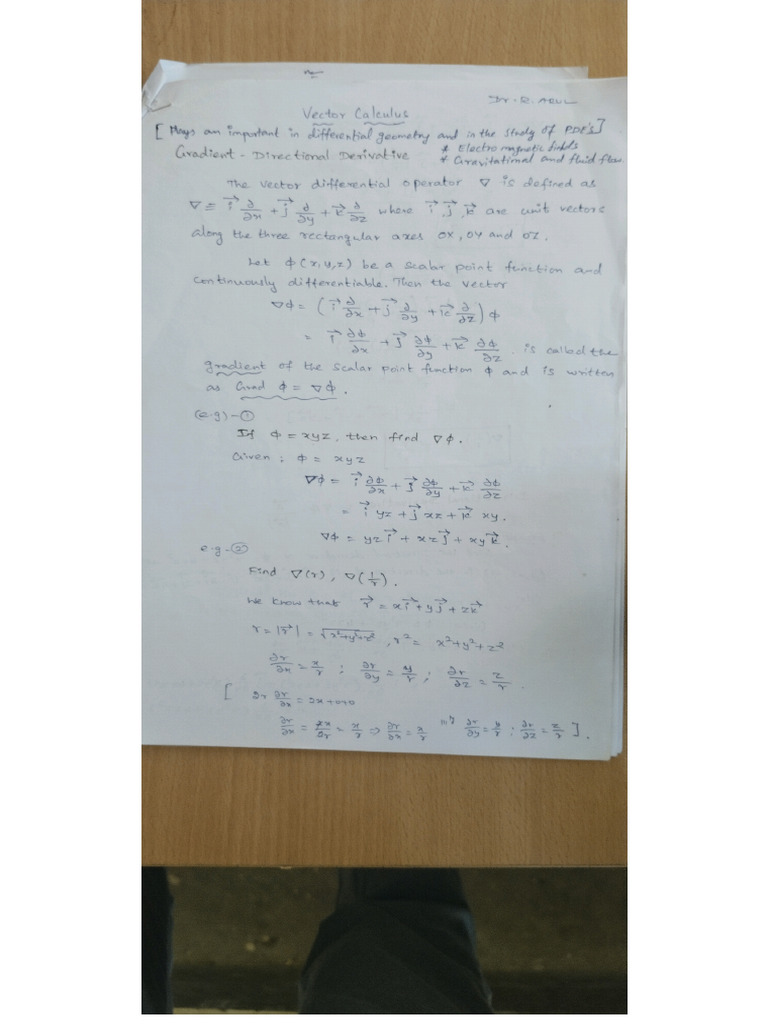 Dr. R. ARUL
Vector Calculus
[ Plays an important in differential geometry and in the study of PDE's]
* Electro magnetic fields
Gradient - Directional Derivative
* Gravitational and fluid flow.
The vector differential operator ∇ is defined as
∇ ≡ i⃗ ∂/∂x + j⃗ ∂/∂y + k⃗ ∂/∂z where i⃗, j⃗, k⃗ are unit vectors
along the three rectangular axes OX, OY and OZ.
Let ϕ(x,y,z) be a scalar point function and
continuously differentiable. Then the vector
∇ϕ = (i⃗ ∂/∂x + j⃗ ∂/∂y + k⃗ ∂/∂z) ϕ
= i⃗ ∂ϕ/∂x + j⃗ ∂ϕ/∂y + k⃗ ∂ϕ/∂z . is called the
gradient of the scalar point function ϕ and is written
as Grad ϕ = ∇ϕ.
(e.g) - ①
If ϕ = xyz, then find ∇ϕ.
Given : ϕ = xyz
∇ϕ = i⃗ ∂ϕ/∂x + j⃗ ∂ϕ/∂y + k⃗ ∂ϕ/∂z
= i⃗ yz + j⃗ xz + k⃗ xy.
∇ϕ = yz i⃗ + xz j⃗ + xy k⃗.
e.g - ②
Find ∇(r), ∇(1/r).
We know that r⃗ = x i⃗ + y j⃗ + z k⃗
r = |r⃗| = √x²+y²+z² , r² = x²+y²+z²
∂r/∂x = x/r ; ∂r/∂y = y/r ; ∂r/∂z = z/r .
[ 2r ∂r/∂x = 2x+0+0
∂r/∂x = 2x/2r = x/r ⇒ ∂r/∂x = x/r ∂r/∂y = y/r ; ∂r/∂z = z/r ].